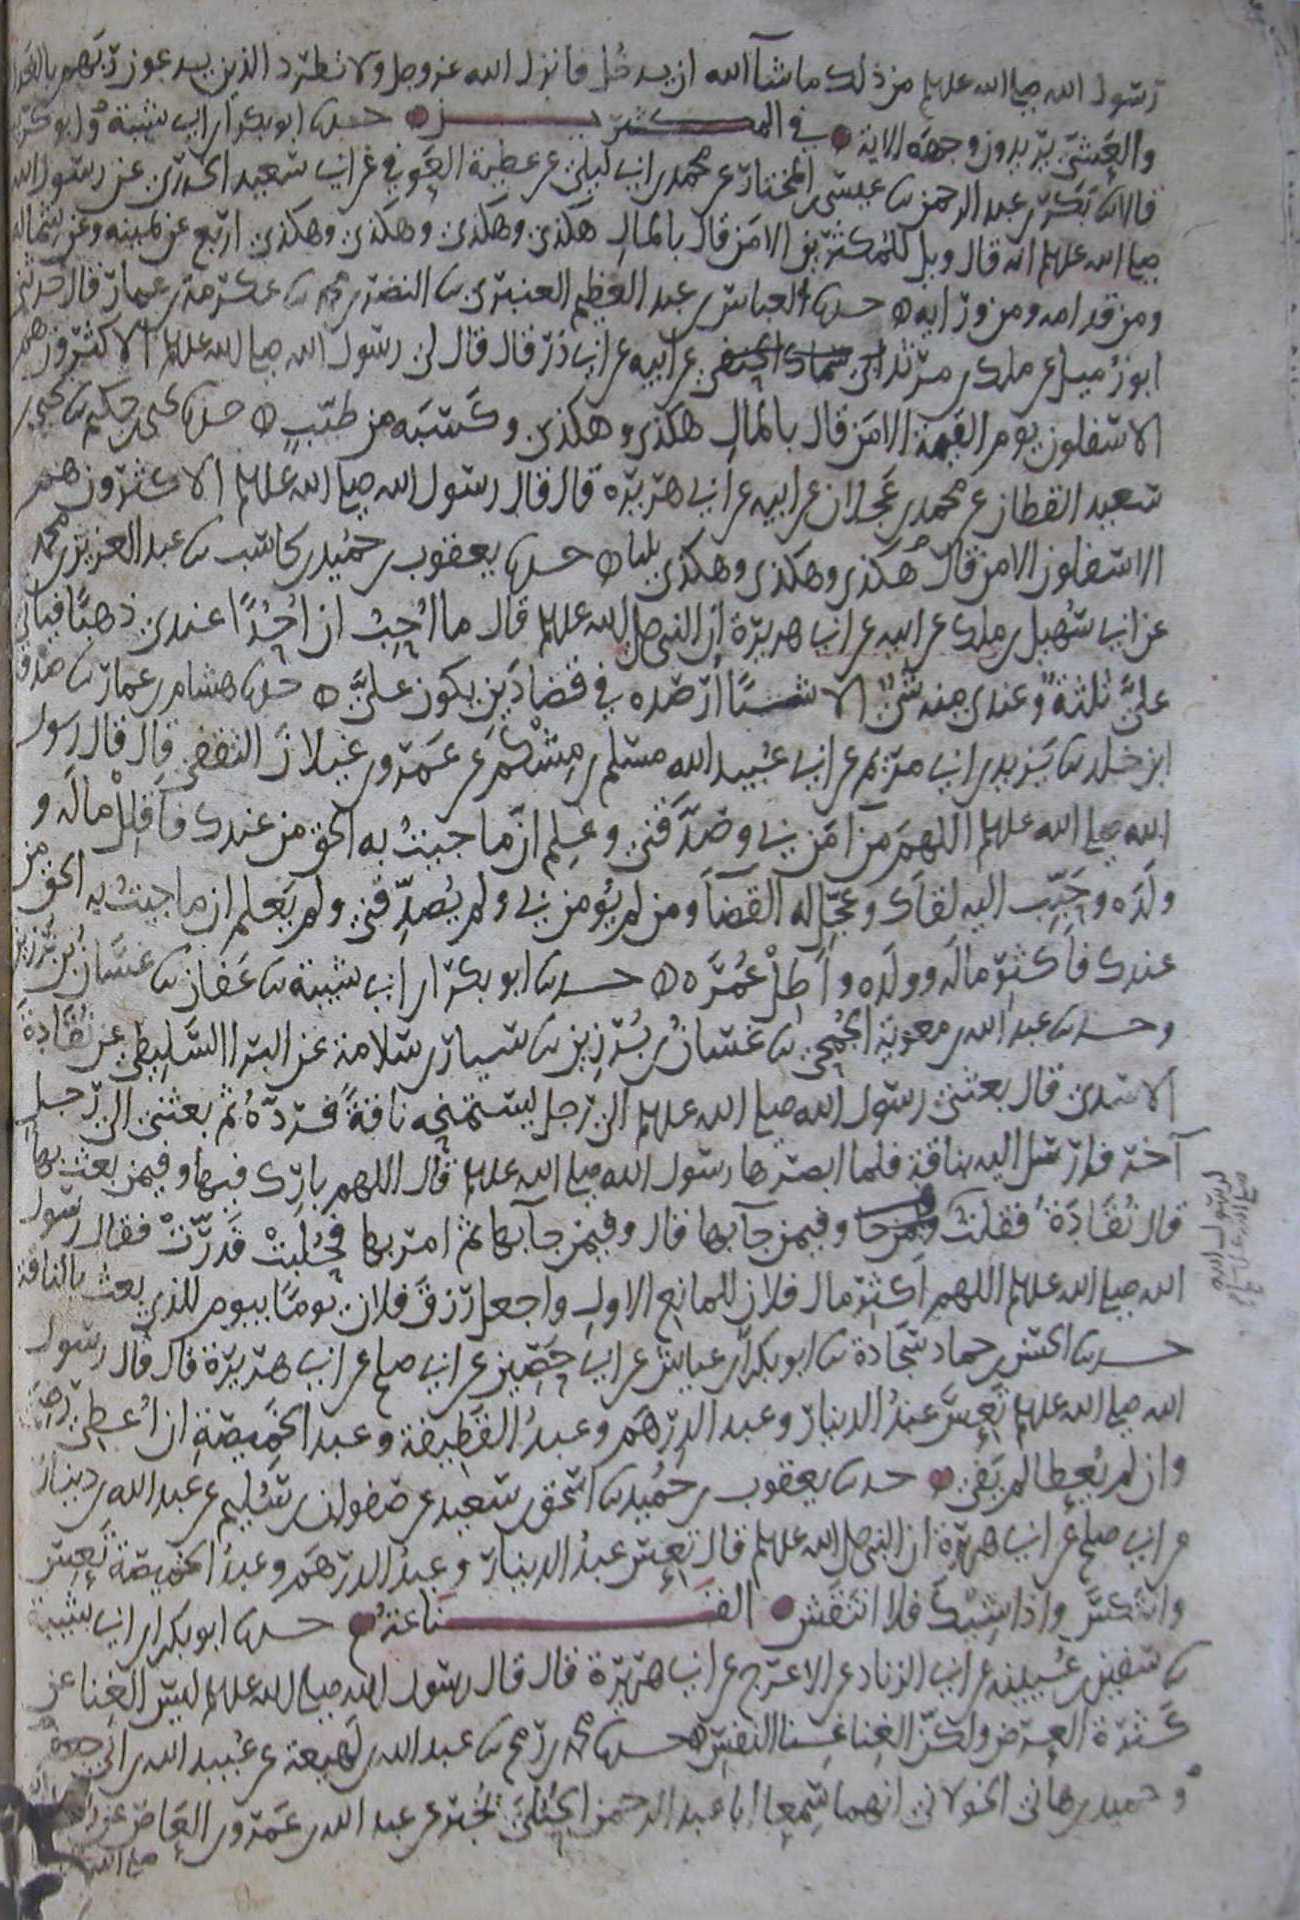 رسول الله صلى الله عليه وسلم من ذلك ما شآ الله ان يدخل فانزل الله عز وجل ولا تطرد الذين يدعون ربهم بالغداة
والعشي يريدون وجهه الاية في المكثرين حدثنا ابو بكر بن ابي شيبة وابو كريب
قالا ثنا بكر بن عبد الرحمن ثنا عيسى بن المختار عن محمد بن ابي ليلى عن عطية العوفي عن ابي سعيد الخدري عن رسول الله
صلى الله عليه وسلم انه قال ويل للمكثرين الا من قال بالمال هكذى وهكذى وهكذى وهكذى اربع عن يمينه وعن شماله
ومن قدامه ومن ورايه حدثنا العباس بن عبد العظيم العنبري ثنا النضر بن محمد ثنا عكرمة بن عمار قال حدثني
ابو زميل عن ملك بن مرثد الحنفي عن ابيه عن ابي ذر قال قال لي رسول الله صلى الله عليه وسلم الاكثرون هم
الاسفلون يوم القيمة الا من قال بالمال هكذى وهكذى وكسبه من طيب حدثنا يحيى بن حكيم ثنا يحيى بن
سعيد القطان عن محمد بن عجلان عن ابيه عن ابي هريرة قال قال رسول الله صلى الله عليه وسلم الاكثرون هم
الاسفلون الا من قال هكذى وهكذى وهكذى ثلثا حدثنا يعقوب بن حميد بن كاسب ثنا عبد العزيز بن محمد
عن ابي سهيل بن ملك عن ابيه عن ابي هريرة ان النبي صلى الله عليه وسلم قال ما احب ان احدا عندي ذهبا فياتي
علي ثلثة وعندي منه شي الا شيا ارصده في قضا دين يكون علي حدثنا هشام بن عمار ثنا صدقة
ابن خلد ثنا يزيد بن ابي مريم عن ابي عبيد الله مسلم بن مشكم عن عمرو بن غيلان الثقفي قال قال رسول
الله صلى الله عليه وسلم اللهم من آمن بي وصدقني وعلم ان ما جيت به الحق من عندك فاقلل ماله و
ولده وحبب اليه لقاك وعجل له القضآ ومن لم يومن بي ولم يصدقني ولم يعلم ان ما جيت به الحق من
عندك فاكثر ماله وولده واطل عمره حدثنا ابو بكر بن ابي شيبة ثنا عفان ثنا غسان بن برزين
وحدثنا عبد الله بن معوية الجمحي ثنا غسان بن برزين ثنا سيار بن سلامة عن البرا السليطي عن نقادة
الاسدي قال بعثني رسول الله صلى الله عليه وسلم الى رجل يستمنحه ناقة فرده ثم بعثني الى رجل
آخر فارسل اليه بناقة فلما ابصرها رسول الله صلى الله عليه وسلم قال اللهم بارك فيها وفيمن بعث بها
قال نقادة فقلت وفيمن جآ بها قال وفيمن جآ بها ثم امر بها فحلبت فدرت فقال رسول
الله صلى الله عليه وسلم اللهم اكثر مال فلان للمانع الاول واجعل رزق فلان يوما بيوم للذي بعث بالناقة
حدثنا الحسن بن حماد سجادة ثنا ابو بكر بن عياش عن ابي حصين عن ابي صلح عن ابي هريرة قال قال رسول
الله صلى الله عليه وسلم تعس عبد الدينار وعبد الدرهم وعبد القطيفة وعبد الخميصة ان اعطي رضي
وان لم يعط لم يفي حدثنا يعقوب بن حميد ثنا اسحق بن سعيد عن صفوان بن سليم عن عبد الله بن دينار
عن ابي صلح عن ابي هريرة ان النبي صلى الله عليه وسلم قال تعس عبد الدينار وعبد الدرهم وعبد الخميصة تعس
وانتكس واذا شيك فلا انتقش القناعة حدثنا ابو بكر بن ابي شيبة
ثنا سفين بن عيينة عن ابي الزناد عن الاعرج عن ابي هريرة قال قال رسول الله صلى الله عليه وسلم ليس الغنا عن
كثرة العرض ولكن الغنا غنا النفس حدثنا محمد بن رمح ثنا عبد الله بن لهيعة عن عبيد الله بن ابي جعفر
وحميد بن هاني الخولاني انهما سمعا ابا عبد الرحمن الحبلي يخبر عن عبد الله بن عمرو بن العاص عن رسول الله
صلى الله